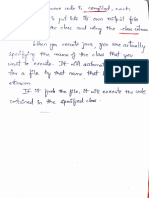 source code is compiled, each
is put into its own output file
the class and using the .class
When you execute java, you are actually
specifying the name of the class that you
want to execute. It will automa
for a file by that name that
If it finds the file, it will execute the code
contained in the specified class.